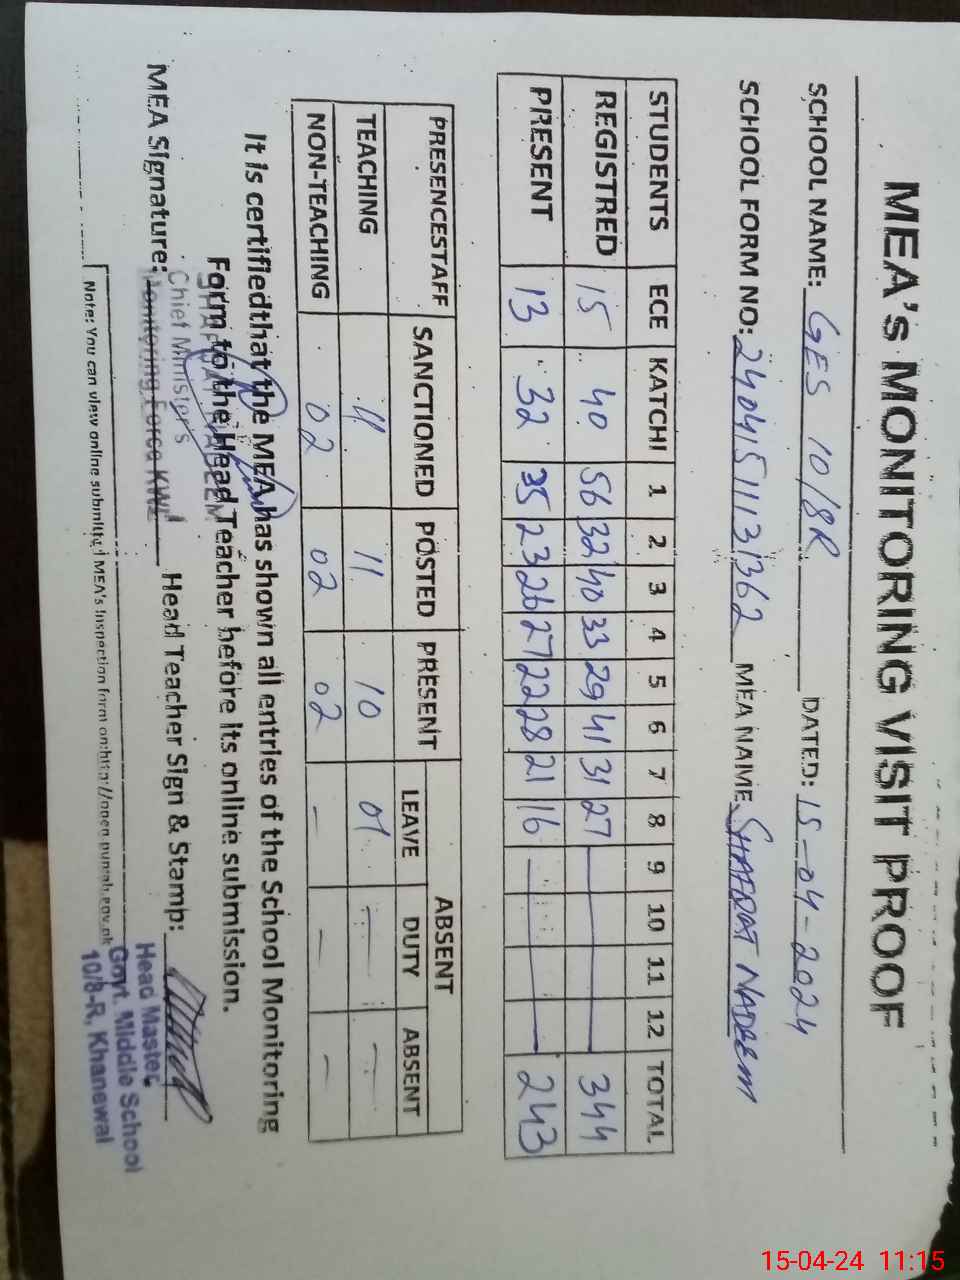 MEA's MONITORING VISIT PROOF
SCHOOL NAME: GES 10/8R DATED: 15-04-2024
SCHOOL FORM NO: 24041511131362 MEA NAME SHAFQAT NADEEM
STUDENTS ECE KATCHI 1 2 3 4 5 6 7 8 9 10 11 12 TOTAL
REGISTRED 15 40 56 32 40 33 29 41 31 27 344
PRESENT 13 32 35 23 26 27 22 28 21 16 243
PRESENCESTAFF SANCTIONED POSTED PRESENT ABSENT
LEAVE DUTY ABSENT
TEACHING 11 11 10 01 - -
NON-TEACHING 02 02 02 - - -
It is certifiedthat the MEA has shown all entries of the School Monitoring
Form to the Head Teacher before its online submission.
SHAFQAT NADEEM
Chief Minister's
Monitoring Force KWL
MEA Signature: Head Teacher Sign & Stamp:
Head Master
Govt. Middle School
10/8-R, Khanewal
Note: You can view online submitted MEA's Inspection form on:http://open.punjab.gov.pk
15-04-24 11:15